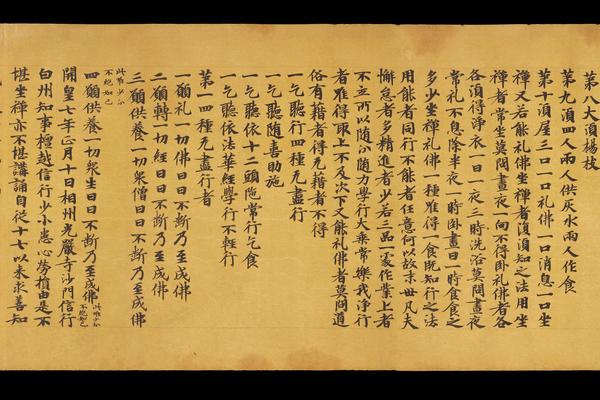 第八大須楊枝
第九須四人兩人供灰水兩人作食
第十須屋三口一口礼佛一口消息一口坐
禪又若能礼佛坐禪者復須知之法用坐
禪者常坐莫問晝夜一向不得卧礼佛者各
各須得淨衣一日一夜三時洗浴莫問晝夜
常礼不息除半夜一時卧晝日一時食食之
多少坐禪礼佛一種唯得一食既知行之法
用能者同行不能者任意何以故末世凡夫
懈怠者多精進者少若三品一處作業上者
不立所以隨力學行大乘常樂我淨行
者唯得取上不及次下又能礼佛者莫問道
俗有籍者得无籍者不得
一乞聽行四種无盡行
一乞聽隨喜助施
一乞聽依十二頭陁常行乞食
一乞聽依法華經學行不輕行
第一四種无盡行者
一願礼一切佛日日不斷乃至成佛
二願轉一切經日日不斷乃至成佛
三願供養一切衆僧日日不斷乃至成佛
四願供養一切衆生日日不斷乃至成佛
開皇七年正月十日相州光嚴寺沙門信行
白州知事檀越信行少小患心勞損由是不
堪坐禪亦不堪講誦自從十七以來求善知